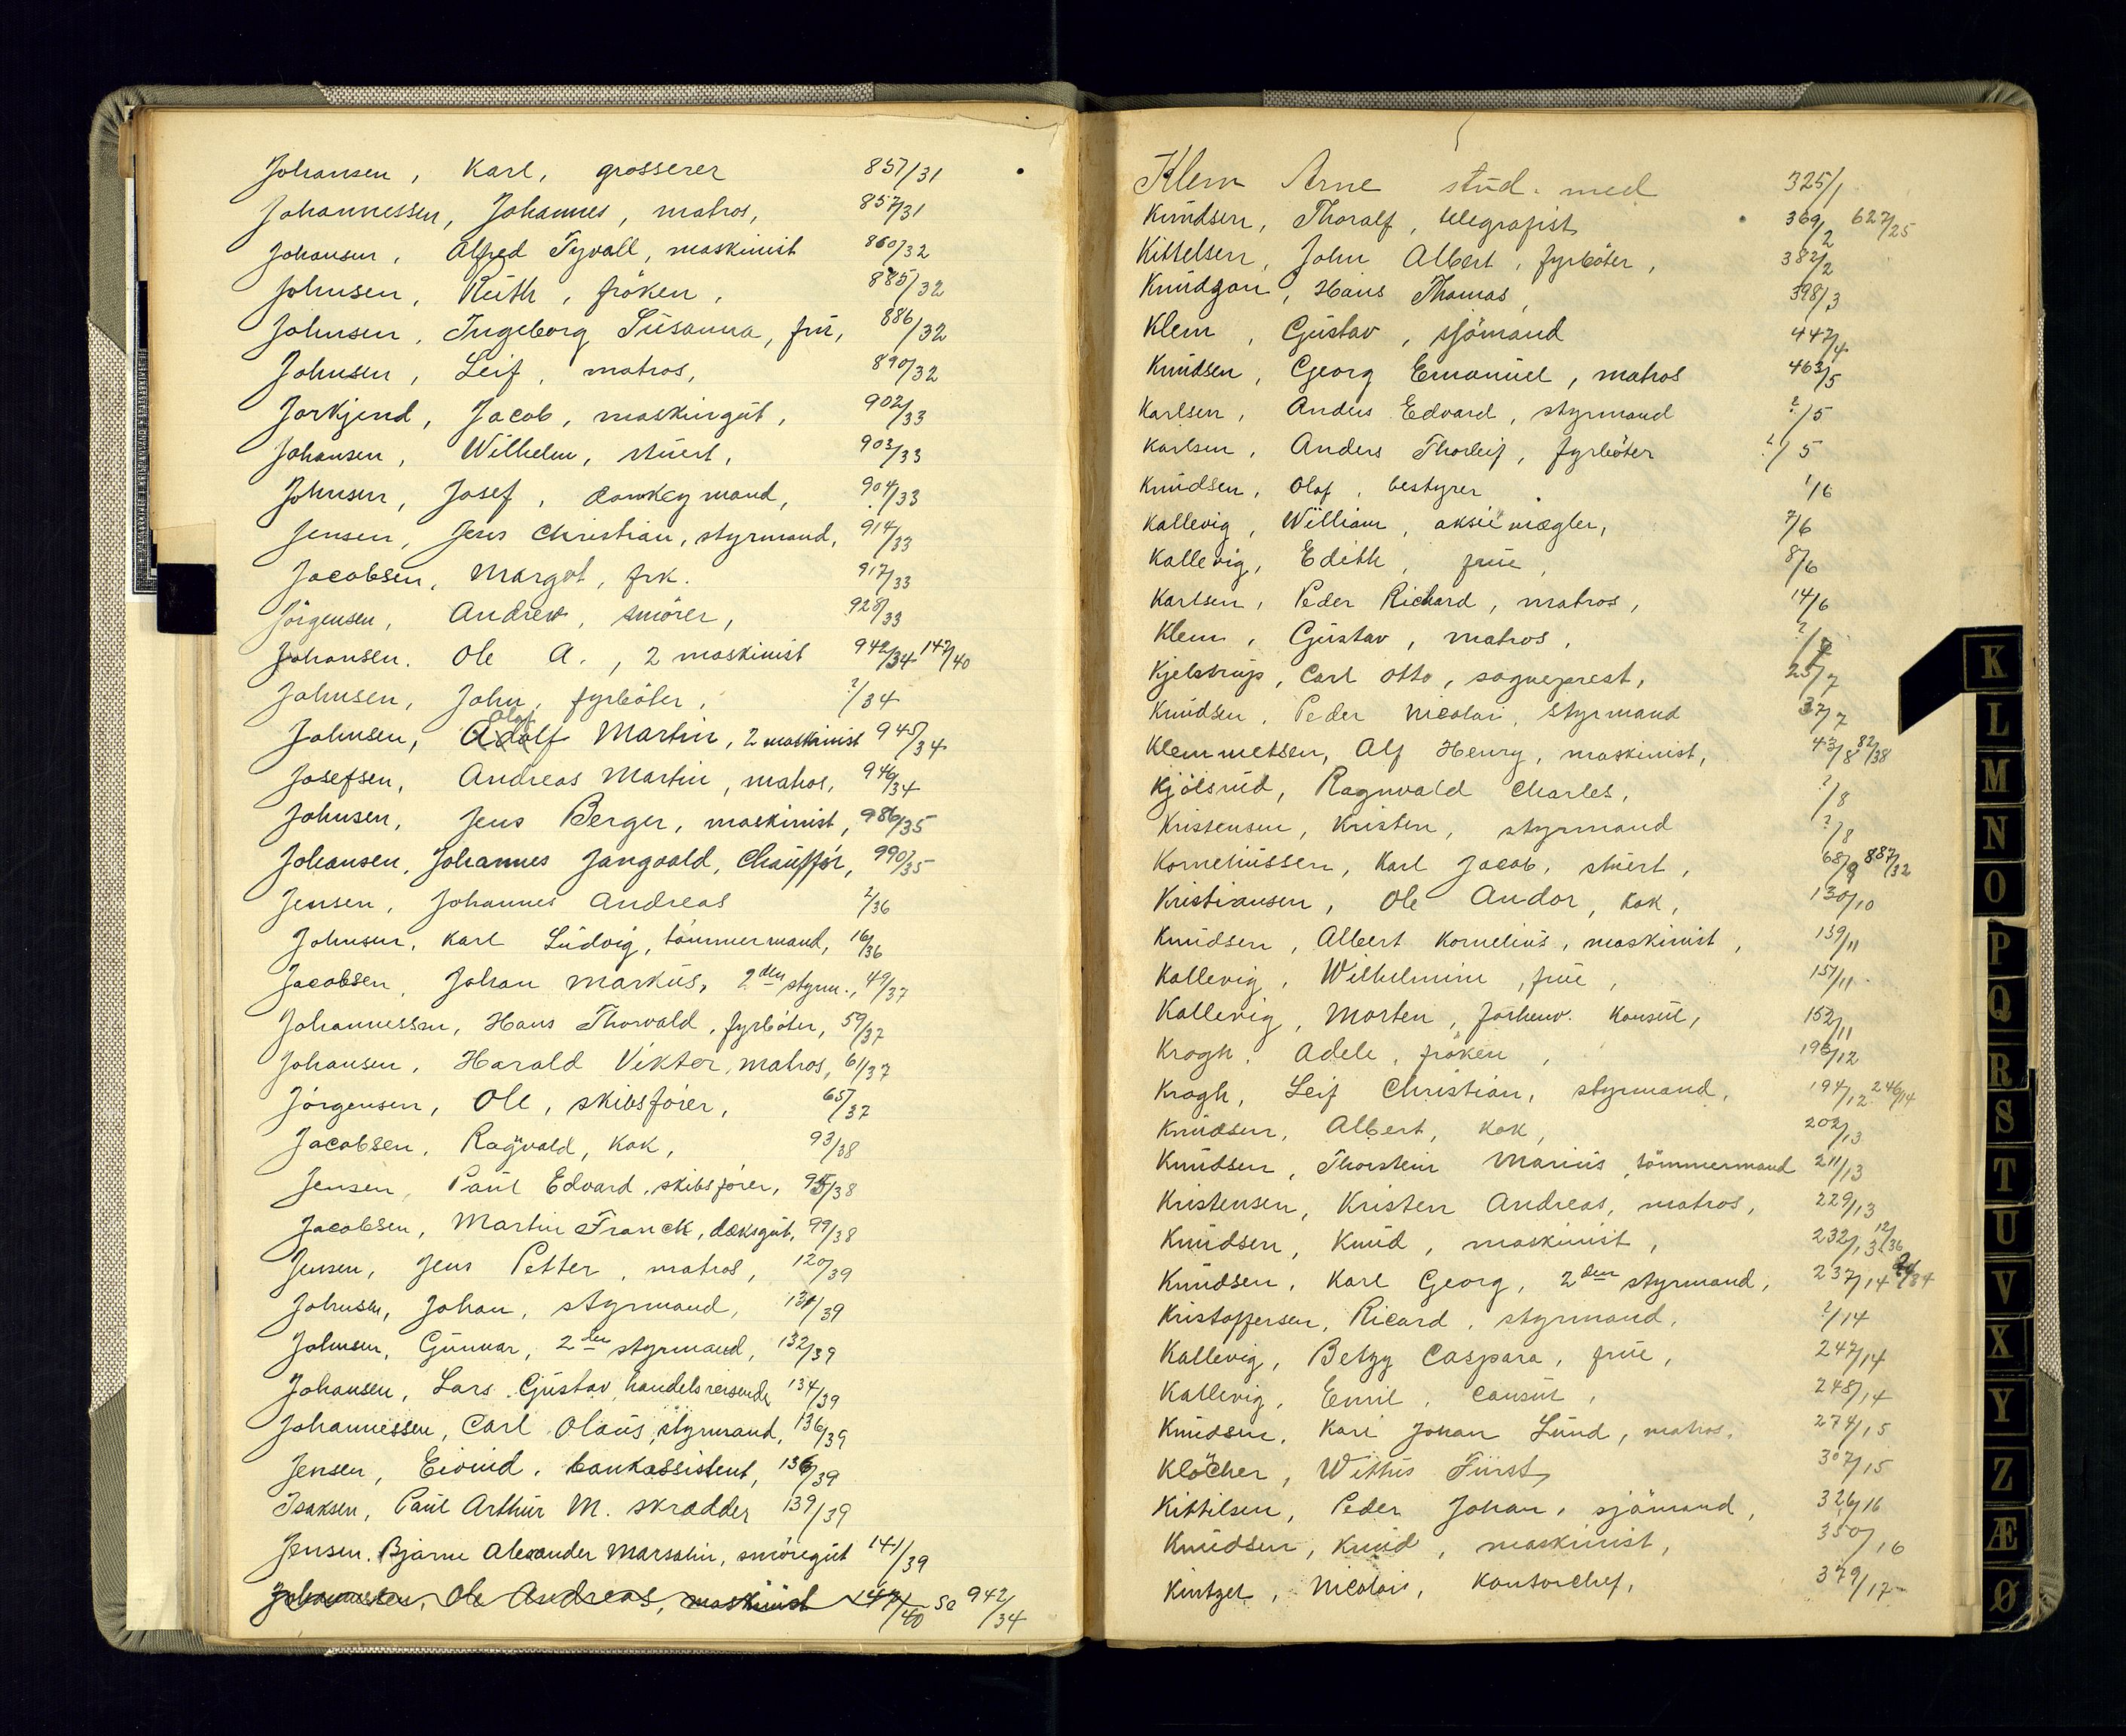 Johansen, Karl, grosserer 857/31
Johannessen, Johannes, matros, 857/31
Johansen, Alfred Tyvall, maskinist 860/32
Johnsen, Ruth, fröken, 885/32
Johnsen, Ingeborg Susanna, frú, 886/32
Johnsen, Leif, matros, 890/32
Jorkjend, Jacob, maskingút, 902/33
Johansen, Wilhelm, stúert, 903/33
Johnsen, Josef, donkeymand, 904/33
Jensen, Jens Christian, styrmand, 914/33
Jacobsen, Margot, frk. 917/33
Jörgensen, Andrew, smörer, 928/33
Johansen. Ole A., 2 maskinist 942/34 147/40
Johnsen, John, fyrböter, ?/34
Johnsen, Olaf Martin, 2 maskinist 945/34
Josefsen, Andreas Martin, matros, 946/34
Johnsen, Jens Berger, maskinist, 986/35
Johansen, Johannes Jangvald, Chaufför, 990/35
Jensen, Johannes Andreas 2/36
Johnsen, Karl Ludvig, tömmermand, 16/36
Jacobsen, Johan Markús, 2den styrm., 49/37
Johannessen, Hans Thorvald, fyrböter, 59/37
Johansen, Harald Viktor, matros, 61/37
Jörgensen, Ole, skibsförer, 65/37
Jacobsen, Ragvald, kok, 93/38
Jensen, Paul Edvard, skibsförer, 95/38
Jacobsen, Martin Franck, dæksgút, 99/38
Jensen, Jens Petter, matros, 120/39
Johnsen, Johan, styrmand, 131/39
Johnsen, Gunnar, 2den styrmand, 132/39
Johansen, Lars Gústav, handelsreisende 134/39
Johannessen, Carl Olaús, styrmand, 136/39
Jensen, Eivind, bankassistent, 136/39
Isaksen, Paul Arthúr M. skrædder 139/39
Jensen, Bjarne Alexander Marsalin, smöregút 141/39
Johannessen, Ole Andreas, maskinist 147/40 Se 942/34
K
L
M
N
O
P
Q
R
S
T
U
V
X
Y
Z
Æ
Ø
Klem Arne stud. med 325/1
Knudsen, Thoralf, telegrafist 369/2 627/25
Kittelsen, John Albert, fyrböter, 382/2
Knudzon, Hans Thomas, 398/3
Klem, Gustav, sjömand 447/4
Knudsen, Georg Emanuel, matros 463/5
Karlsen, Anders Edvard, styrmand ?/5
Karlsen, Anders Thorleif, fyrböter ?/5
Knudsen, Olaf, bestyrer 1/6
Kallevig, William, aksiemægler, 7/6
Kallevig, Edith, frue, 8/6
Karlsen, Peder Richard, matros, 14/6
Klem, Gustav, matros, ?/7
Kjelstrup, Carl Otto, sogneprest, 25/7
Knudsen, Peder Nicolai, styrmand 37/7
Klemmetsen, Alf Henry, maskinist, 43/8 82/38
Kjölsrud, Ragnvald Charles, ?/8
Kristensen, Kristen, styrmand ?/8
Korneliussen, Karl Jacob, stuert, 68/9 887/32
Kristiansen, Ole Andor, kok, 130/10
Knudsen, Albert Kornelius, maskinist, 139/11
Kallevig, Wilhelmine, frue, 151/11
Kallevig, Morten, forhenv. konsul, 152/11
Krogh, Adele, fröken, 193/12
Krogh, Leif Christian, styrmand, 194/12 246/14
Knudsen, Albert, kok, 202/13
Knudsen, Thorstein Marius, tömmermand 211/13
Kristensen, Kristen Andreas, matros, 229/13
Knudsen, Knud, maskinist, 232/13 12/36
Knudsen, Karl Georg, 2den styrmand, 237/14
Kristoffersen, Ricard, styrmand, ?/14
Kallevig, Betzy Caspara, frue, 247/14
Kallevig, Emil, consul, 248/14
Knudsen, Karl Johan Lund, matros, 274/15
Klöcher, Wittus Fürst, 307/15
Kittilsen, Peder Johan, sjömand, 326/16
Knudsen, Knud, maskinist, 350/16
Kintzel, Nicolai, kontorchef, 379/17